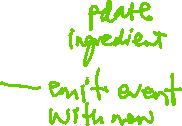 pdate
ingredient
emit event
with new